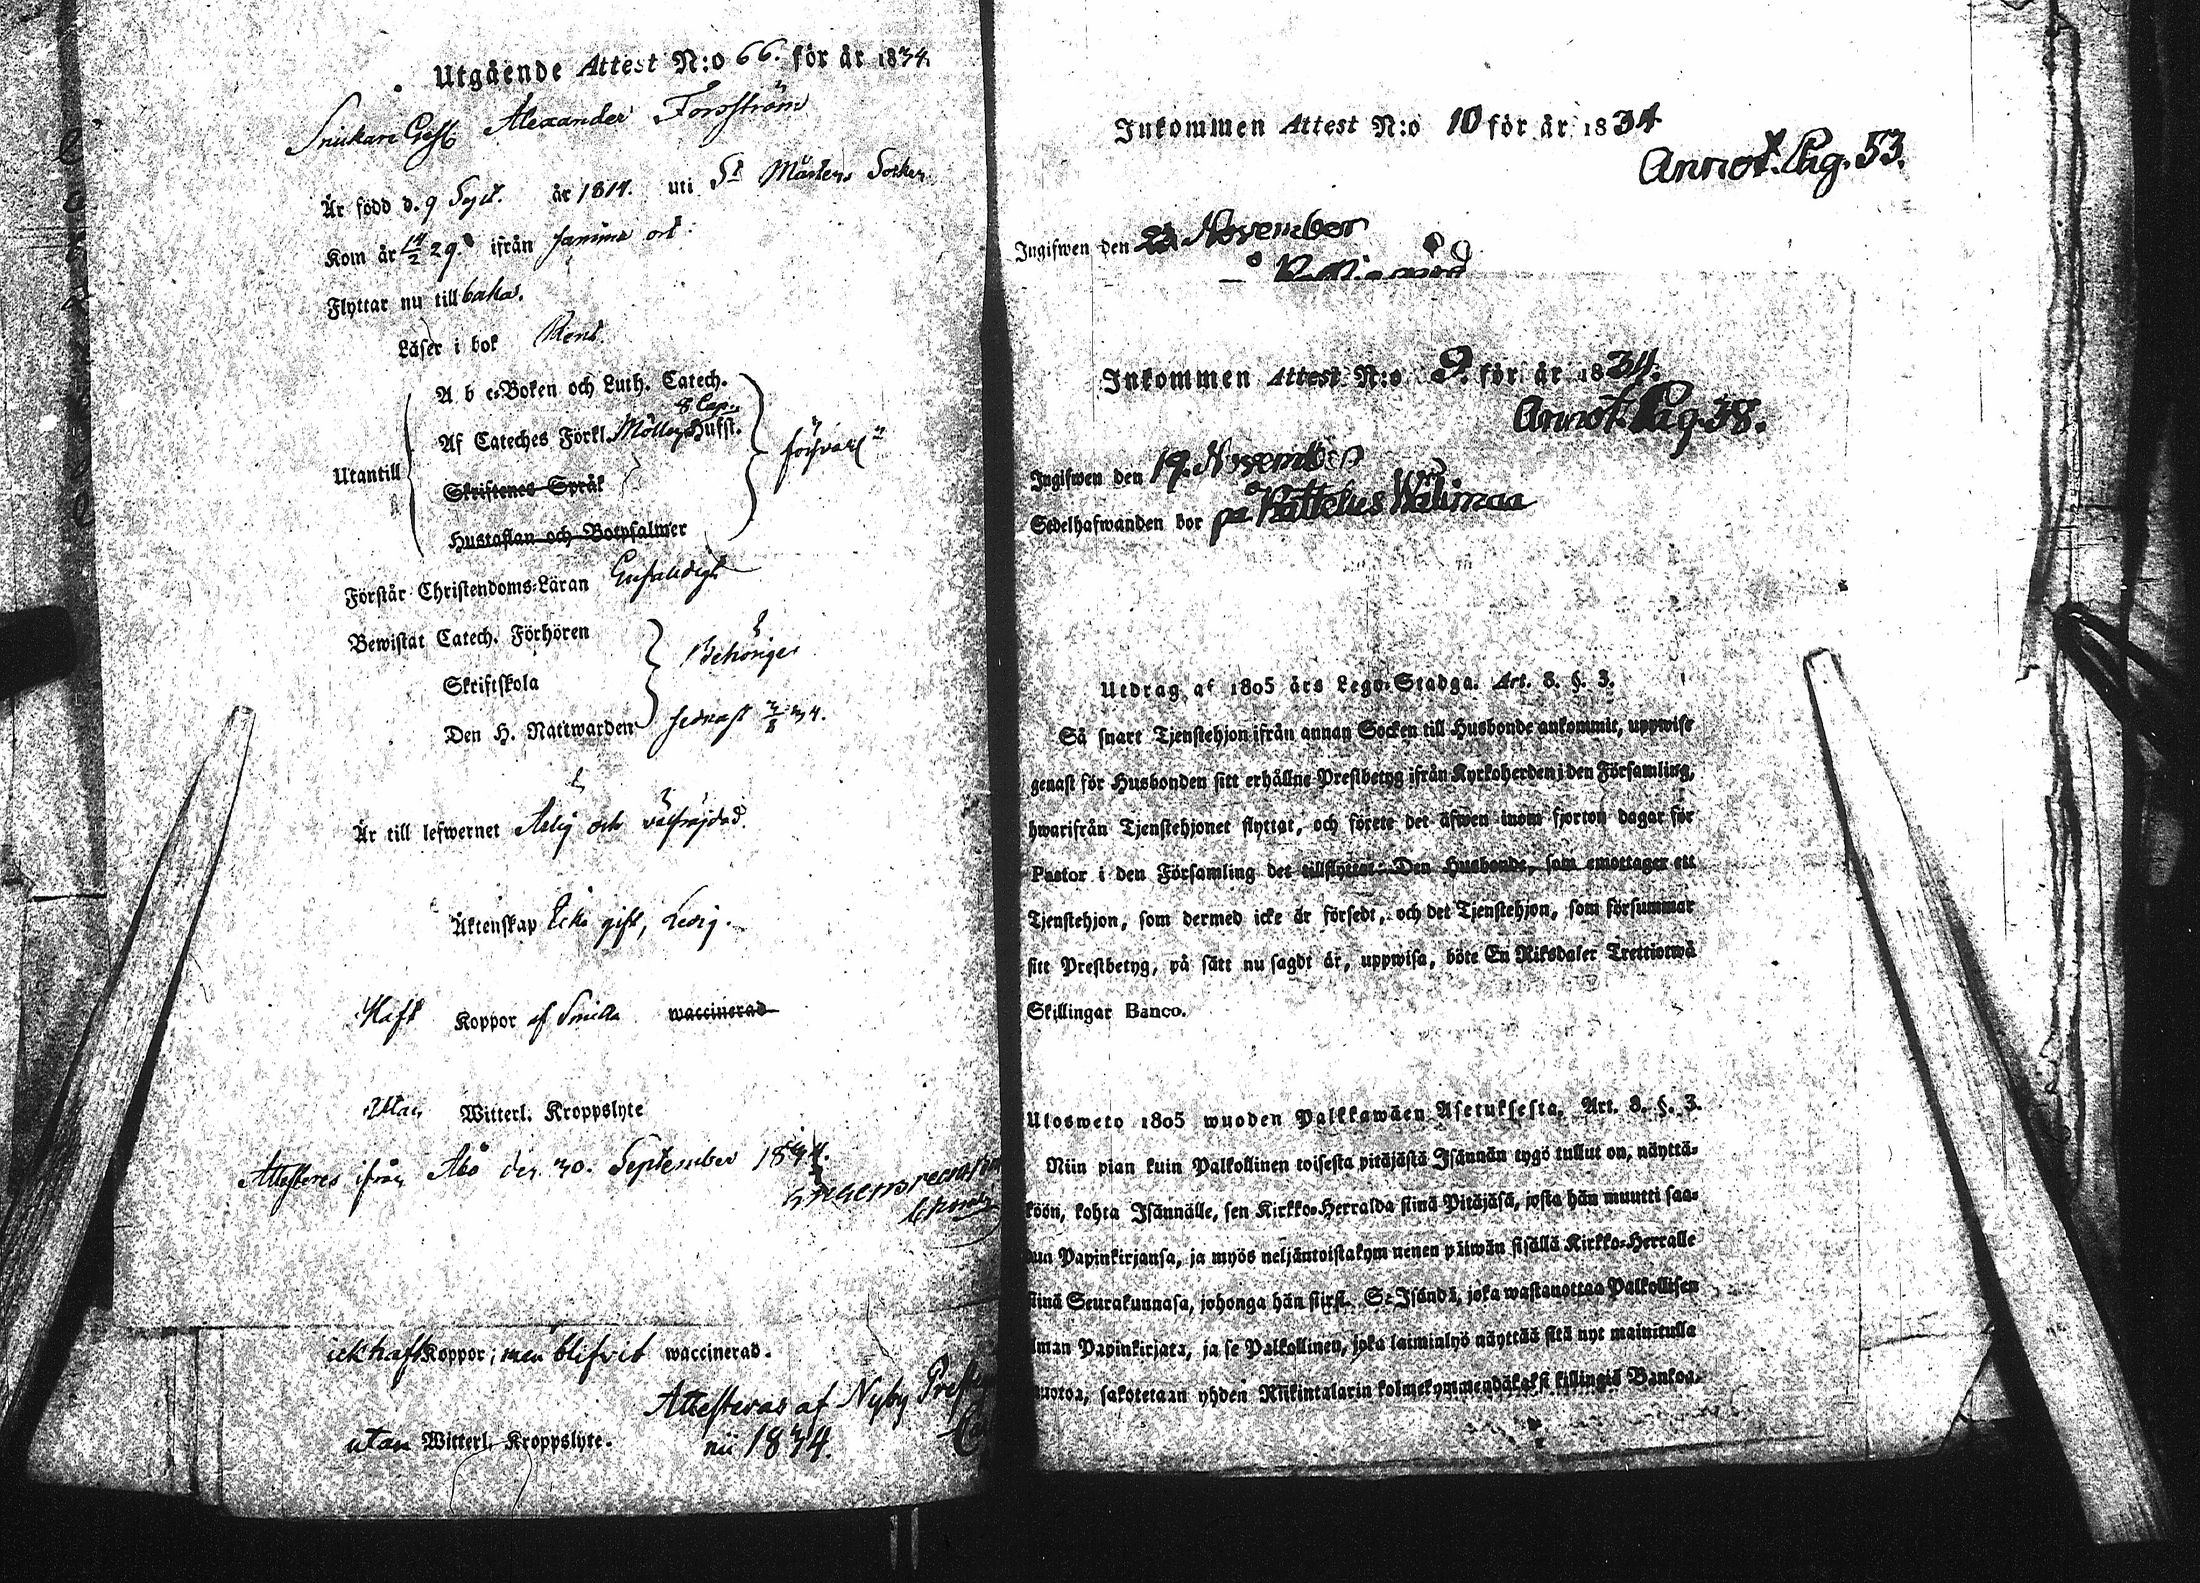 Utgående Attest N:o 66. för år 1834.
Snickare Gesll Alexander Forsström
Är född d. 9 Sept. år 1814. uti St Mårtens Socken
Kom år 14/2 29. ifrån samma ort
Flyttar nu till baka.
Läser i bok Rent.
A b c-Boken och Luth. Catech.
8 Cap.
Af Cateches Förkl. Möllers Hufst.
Utantill
försvarl
Skriftenes Språk
Hustaflan och Botpsalmer
Förstår Christendoms-Läran Enfaldigt
Bewistat Catech. Förhören
Behörige
Skriftskola
Den H. Nattwarden sednast 3/8 34.
Är till lefwernet Ärlig och välfräjdad.
Äktenskap Icke gift, Ledig.
Haft Koppor af Smitta waccinerad
Utan Witterl. Kroppslyte
Attesteres ifrån Åbo den 30. September 1834.
ick haft Koppor, men blifvit waccinerad.
Attesteras af Nyby
utan Witterl. Kroppslyte. 1834.
Inkommen Attest N:o 10 för år 1834
Annot. Pag. 53.
Ingifwen den November
Inkommen Attest N:o 9. för år 1834.
Annot. Pag. 38.
Ingifwen den 19. November
Sedelhafwanden bor på Kattelus Wälimaa
Utdrag af 1805 års Lego-Stadga. Art. 8. §. 3.
Så snart Tjenstehjon ifrån annan Socken till Husbonde ankommit, uppwise
genast för Husbonden sitt erhållne Prestbetyg ifrån Kyrkoherden i den Församling,
hwarifrån Tjenstehjonet flyttat, och förete det äfwen inom fjorton dagar för
Pastor i den Församling det tillflyttat. Den Husbonde, som emottager ett
Tjenstehjon, som dermed icke är försedt, och det Tjenstehjon, som försummar
sitt Prestbetyg, på sätt nu sagdt är, uppwisa, böte En Riksdaler Trettiotwå
Skillingar Banco.
Ulosweto 1805 wuoden Palkkawäen Asetuksesta, Art. 8. §. 3.
Niin pian kuin Palkollinen toisesta pitäjästä Isännän tygö tullut on, näyttä-
köön, kohta Isännälle, sen Kirkko-Herralda siinä Pitäjäsä, josta hän muutti saa-
dun Papinkirjansa, ja myös neljäntoistakymmenen päiwän sisällä Kirkko-Herralle
siinä Seurakunnasa, johonga hän siirst. Se Isändä, joka wastanottaa Palkollisen
ilman Papinkirjata, ja se Palkollinen, joka laiminlyö näyttää sitä nyt mainitulla
muotoa, sakotetaan yhden Riikintalarin kolmekymmendäkaksi killingiä Bankoa.